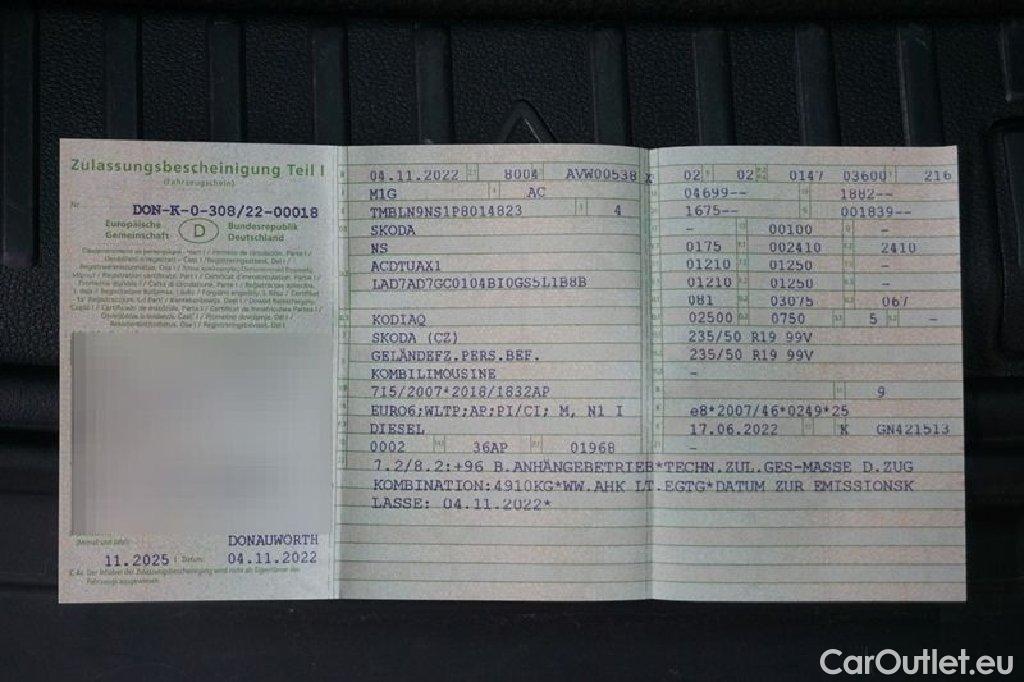 Zulassungsbescheinigung Teil I
(Fahrzeugschein)
Nr.
DON-K-0-308/22-00018
Europäische Gemeinschaft D Bundesrepublik Deutschland
11.2025
DONAUWÖRTH
Datum: 04.11.2022
04.11.2022 8004 AVW00538
M1G AC
TMBLN9NS1P8014823 4
SKODA
NS
ACDTUAX1
LAD7AD7GC0104BI0GS5L1B8B
KODIAQ
SKODA (CZ)
GELÄNDEFZ.PERS.BEF.
KOMBILIMOUSINE
715/2007*2018/1832AP
EURO6;WLTP;AP;PI/CI; M, N1 I
DIESEL
0002 36AP 01968
7.2/8.2:+96 B.ANHÄNGEBETRIEB*TECHN.ZUL.GES-MASSE D.ZUG
KOMBINATION:4910KG*WW.AHK LT.EGTG*DATUM ZUR EMISSIONSK
LASSE: 04.11.2022*
02 02 0147 03600 216
04699-- 1882--
1675-- 001839--
- 00100 -
0175 002410 2410
01210 01250 -
01210 01250 -
081 03075 067
02500 0750 5 -
235/50 R19 99V
235/50 R19 99V
-
9
e8*2007/46*0249*25
17.06.2022 K GN421513
-
CarOutlet.eu